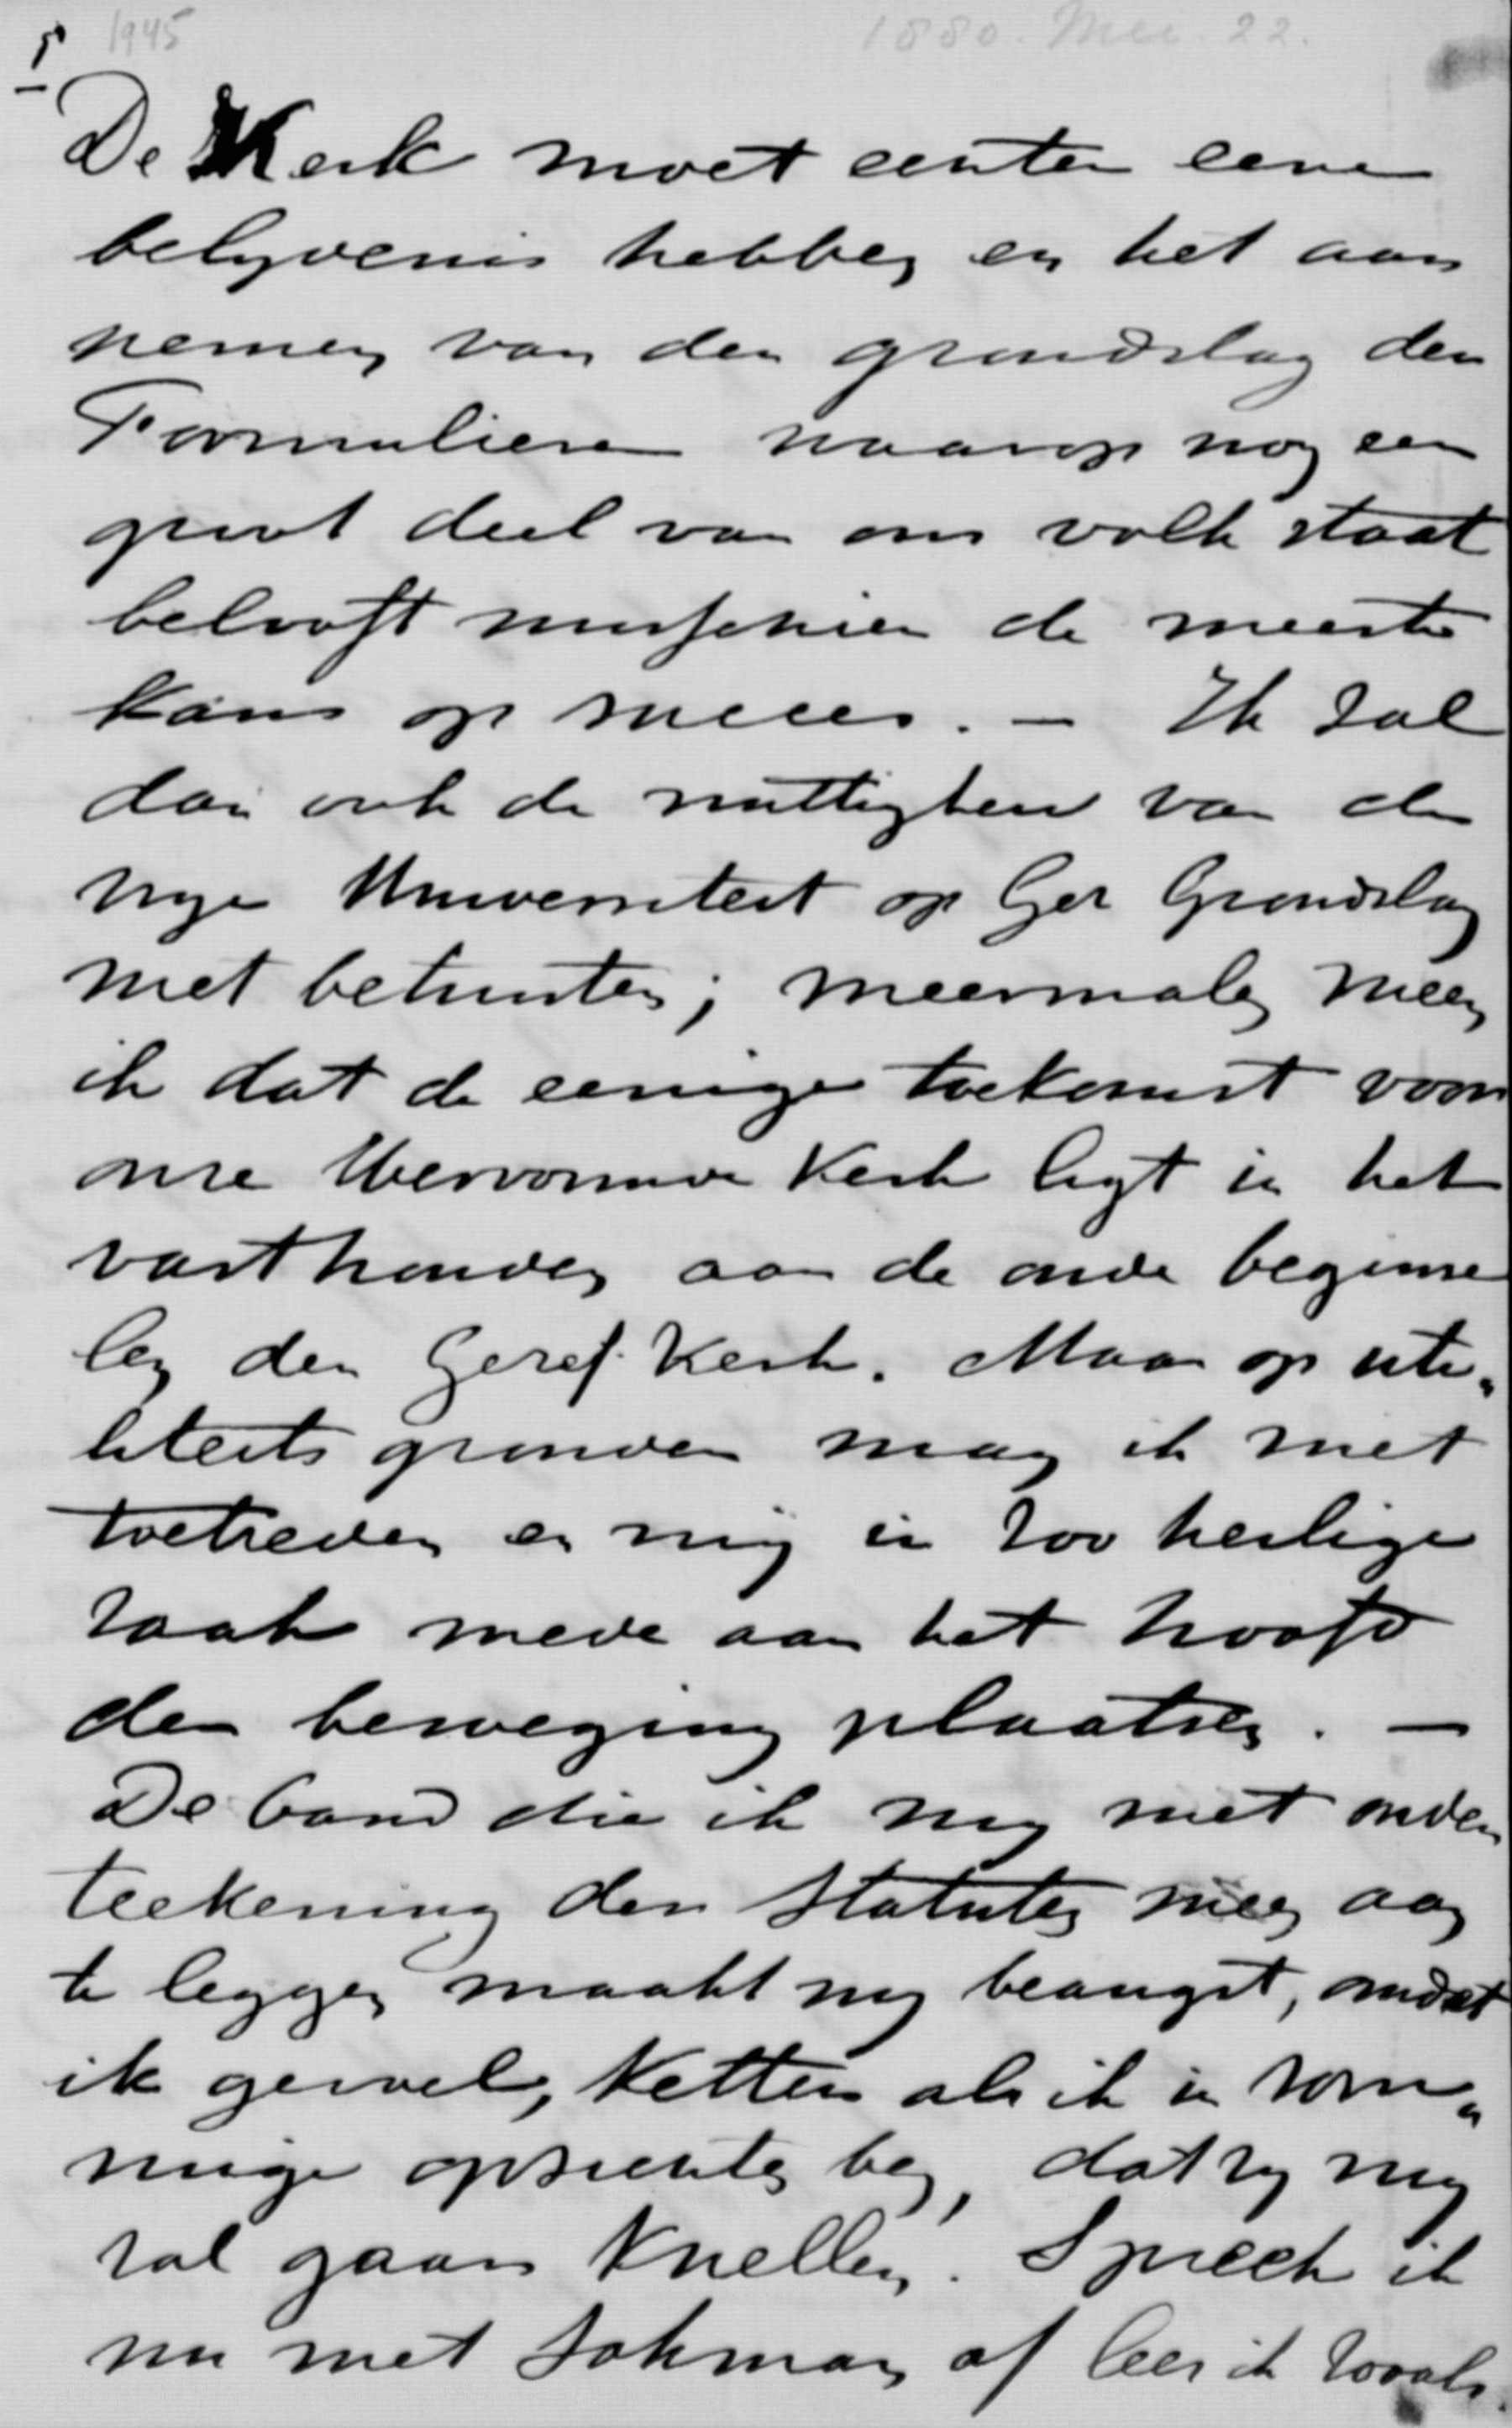 5 1945 1880. Mei. 22.
De Kerk moet echter eene
belydenis hebben en het aan
nemen van den grondslag der
Formulieren waarop nog een
groot deel van ons volk staat
belooft misschien de meeste
kans op succes. — Ik zal
dan ook de nuttigheid van de
nye Universiteit op Ger Grondslag
niet betwisten; meermalen meen
ik dat de eenige toekomst voor
onze Hervormde Kerk ligt in het
vasthouden aan de oude beginse
len der Geref. Kerk. Maar op uti„
liteits gronden mag ik niet
toetreden en mij in zoo heilige
zaak mede aan het hoofd
der beweging plaatsen. —
De band die ik my met onder
teekening der Statuten meen aan
te leggen maakt my beangst, omdat
ik gevoel, Ketter als ik in som„
mige opzichten ben, dat zy my
zal gaan Knellen. Spreek ik
nu met Lohman of lees ik zooals